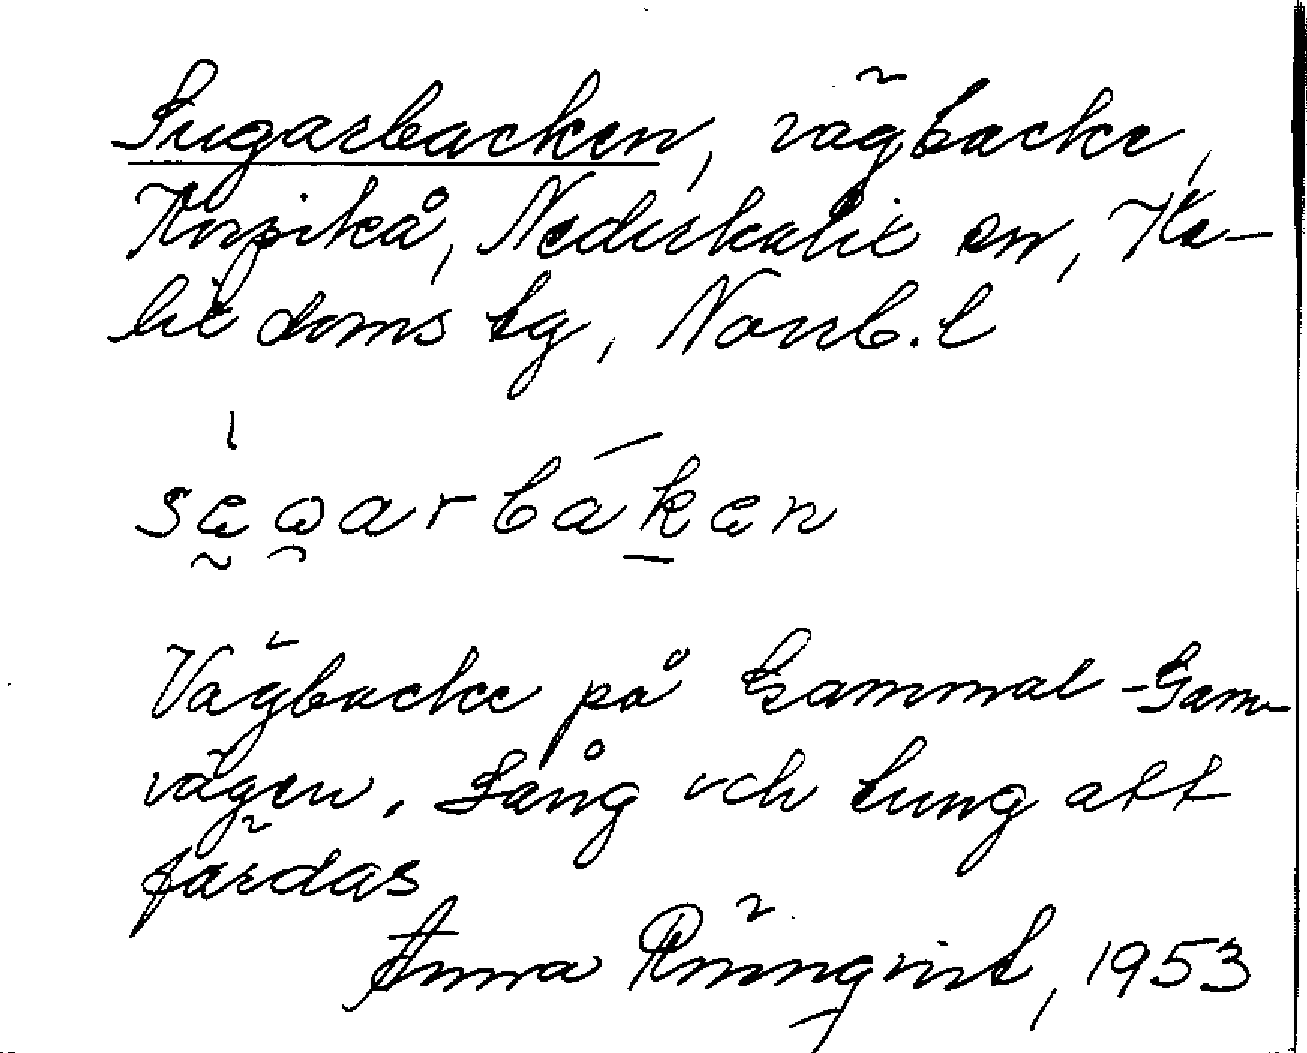 Sugarbacken, vägbacke,
Korpikå, Nederkalix sn, Ka-
lix doms tg, Norrb. l
Vägbacke på Gammal-Gam-
vägen. Lång och tung att
färdas
Anna Rönnqvist, 1953